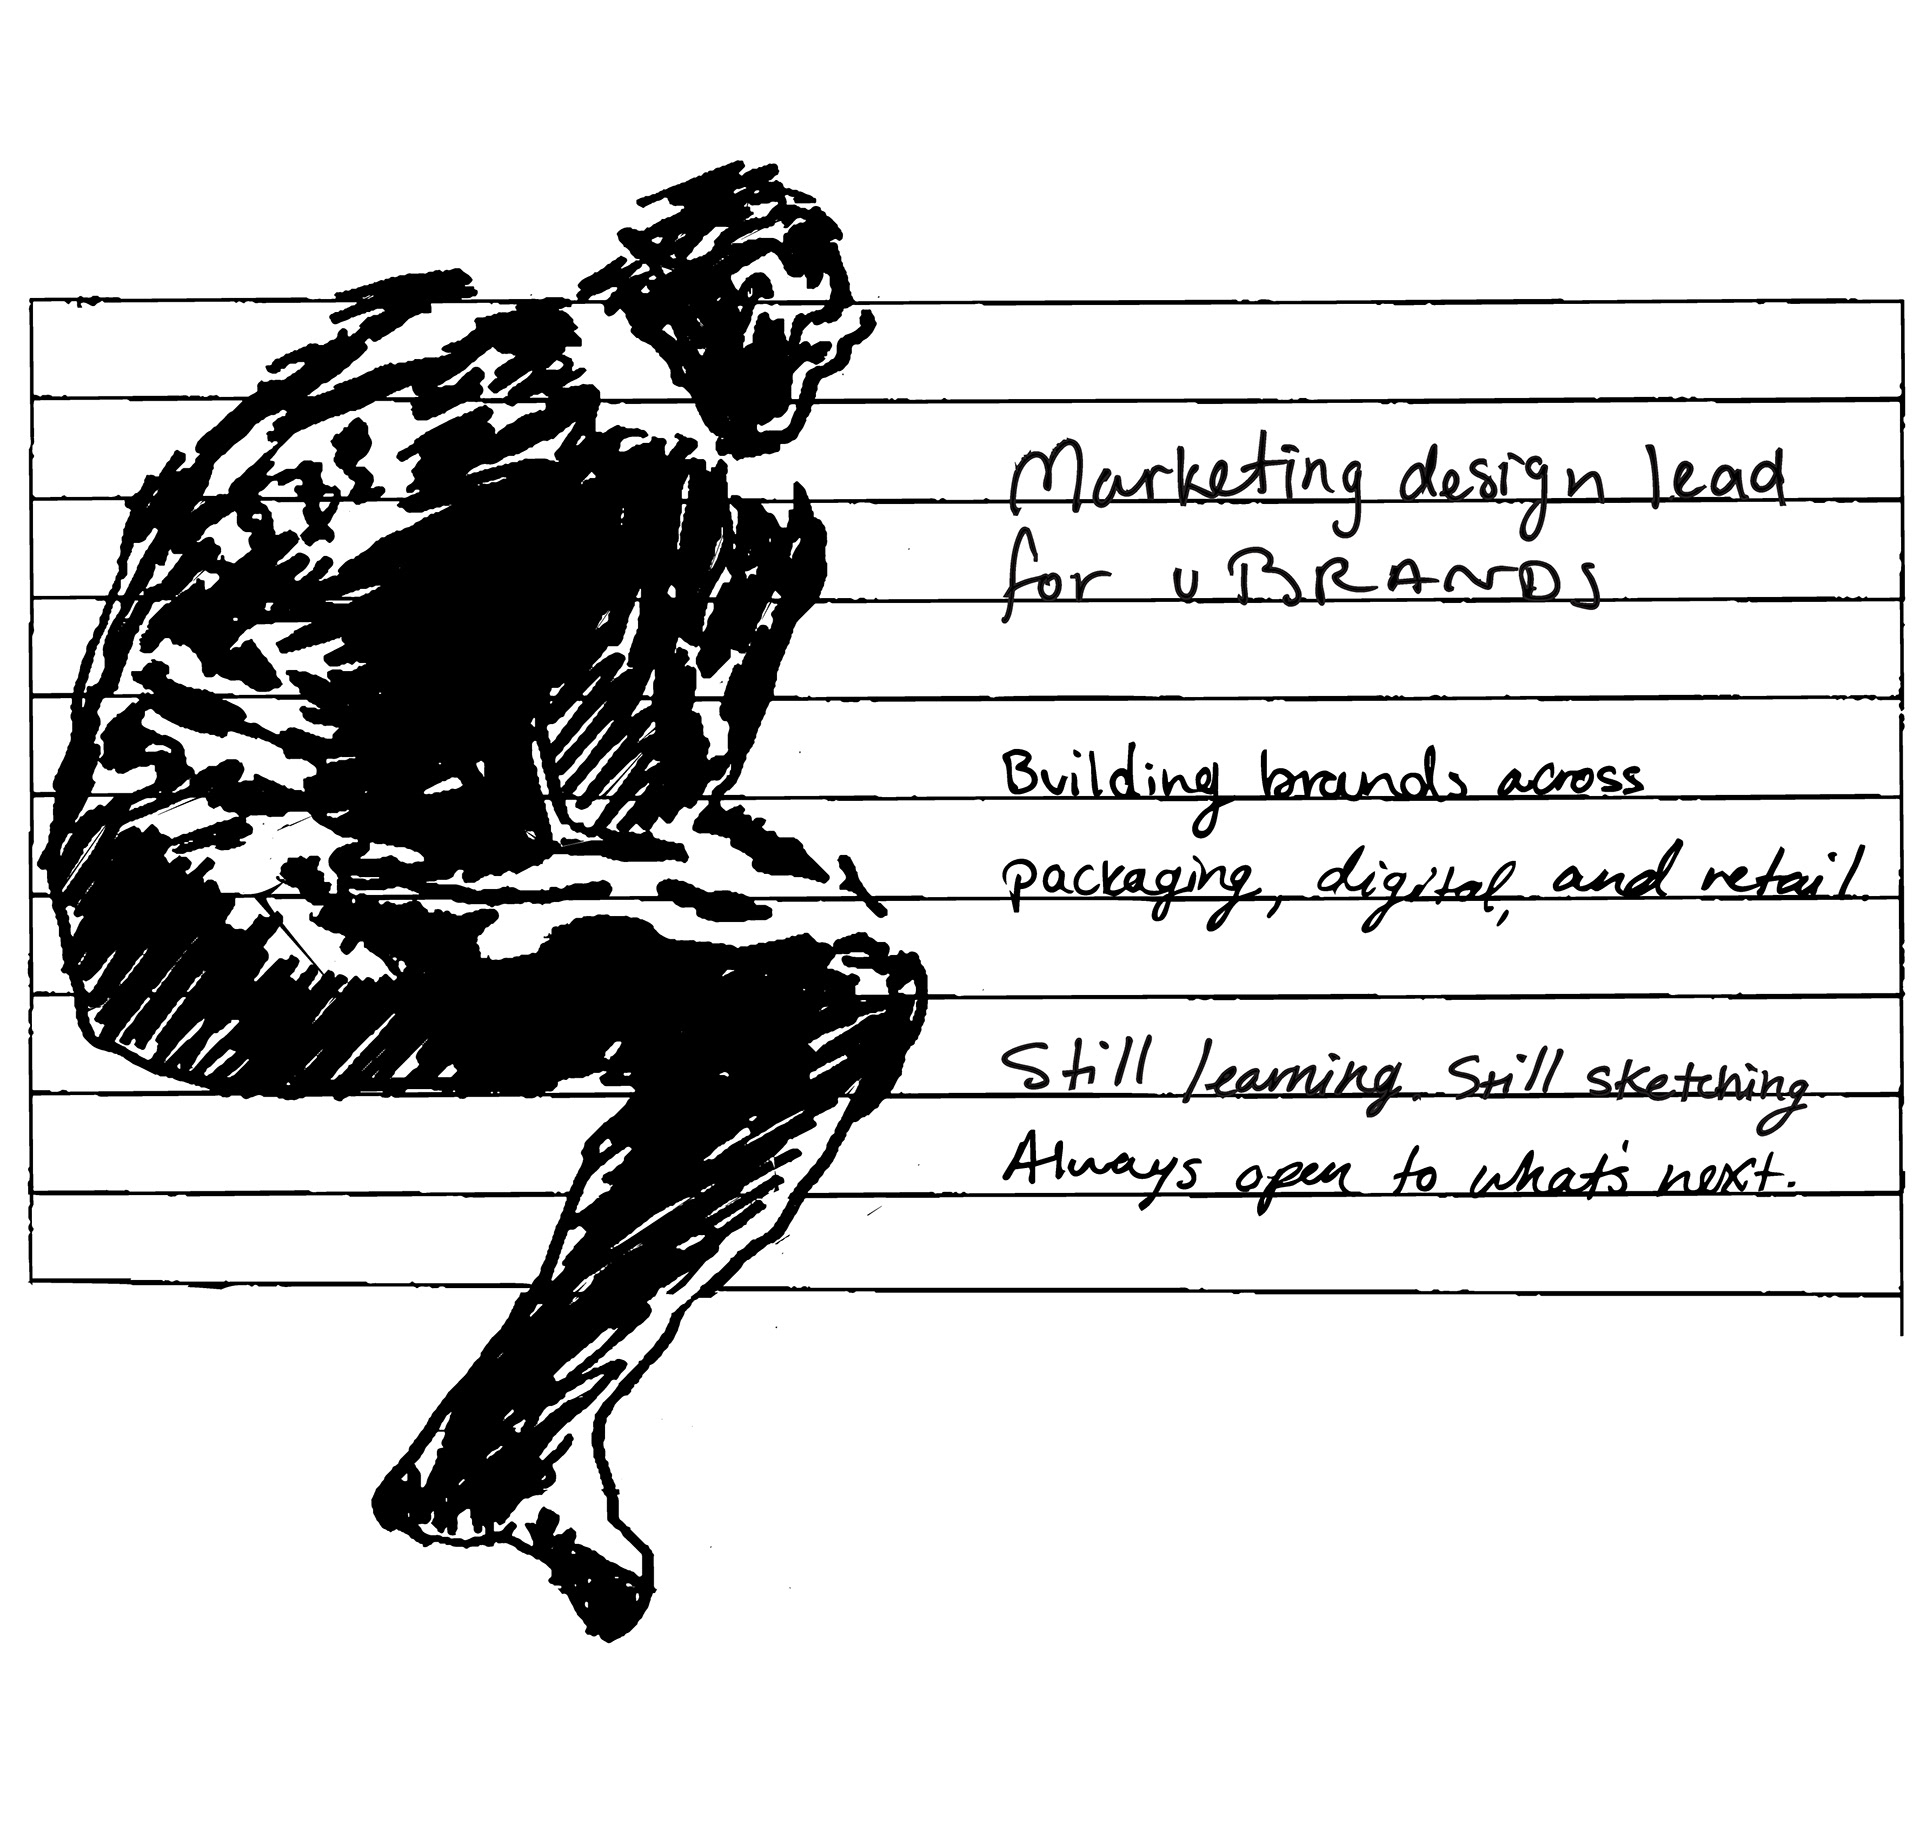 Marketing design lead
for u BRANDS
Building brands across
packaging, digital, and retail.
Still learning. Still sketching
Always open to what's next.